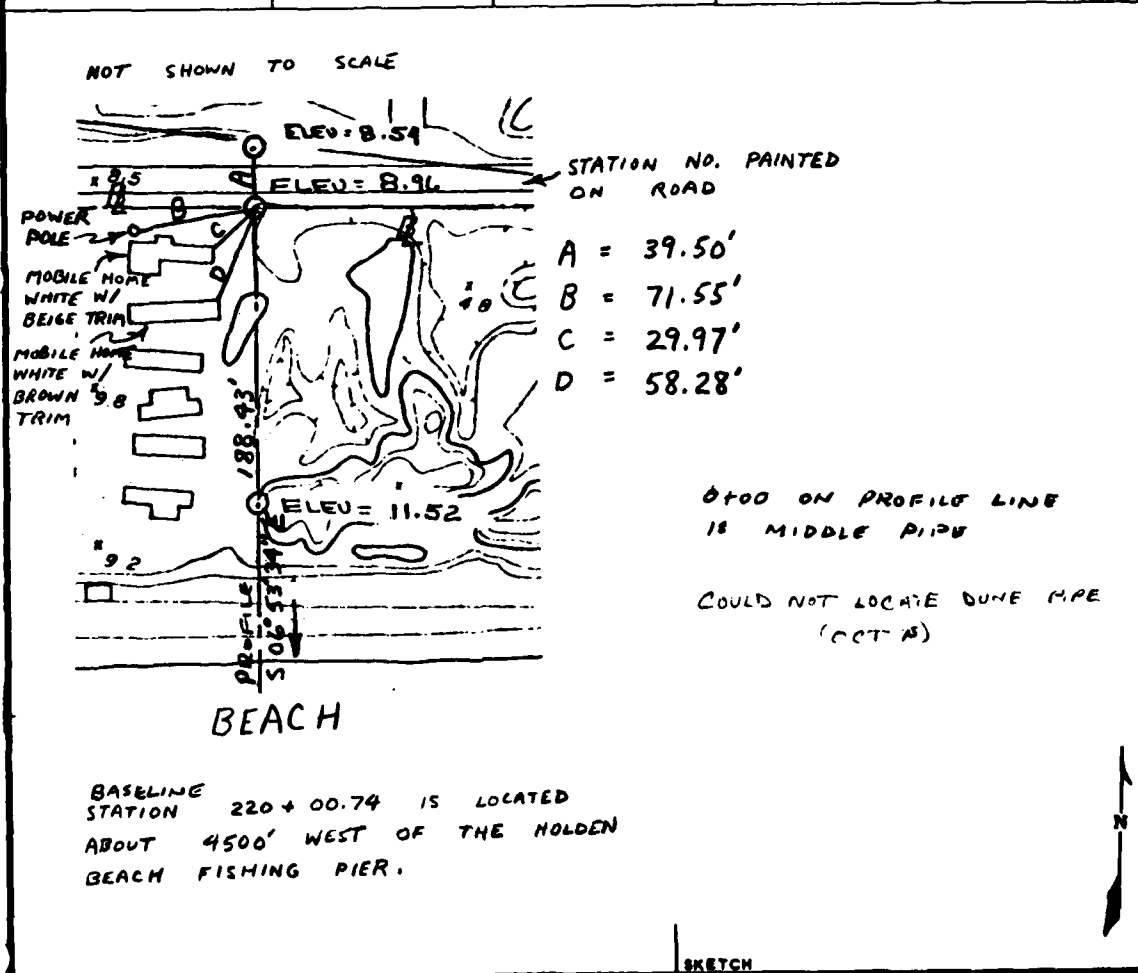 NOT SHOWN TO SCALE
ELEV = 8.54
A
ELEV = 8.96
x 8.5
STATION NO. PAINTED
ON ROAD
POWER
POLE
B
C
D
MOBILE HOME
WHITE W/
BEIGE TRIM
MOBILE HOME
WHITE W/
BROWN
TRIM
x 4.8
x 9.8
188.43'
A = 39.50'
B = 71.55'
C = 29.97'
D = 58.28'
ELEV = 11.52
x 9.2
PROFILE
S 06° 53' 34" E
0+00 ON PROFILE LINE
IS MIDDLE PIPE
COULD NOT LOCATE DUNE PIPE
BEACH
BASELINE
STATION 220 + 00.74 IS LOCATED
ABOUT 4500' WEST OF THE HOLDEN
BEACH FISHING PIER.
N
SKETCH